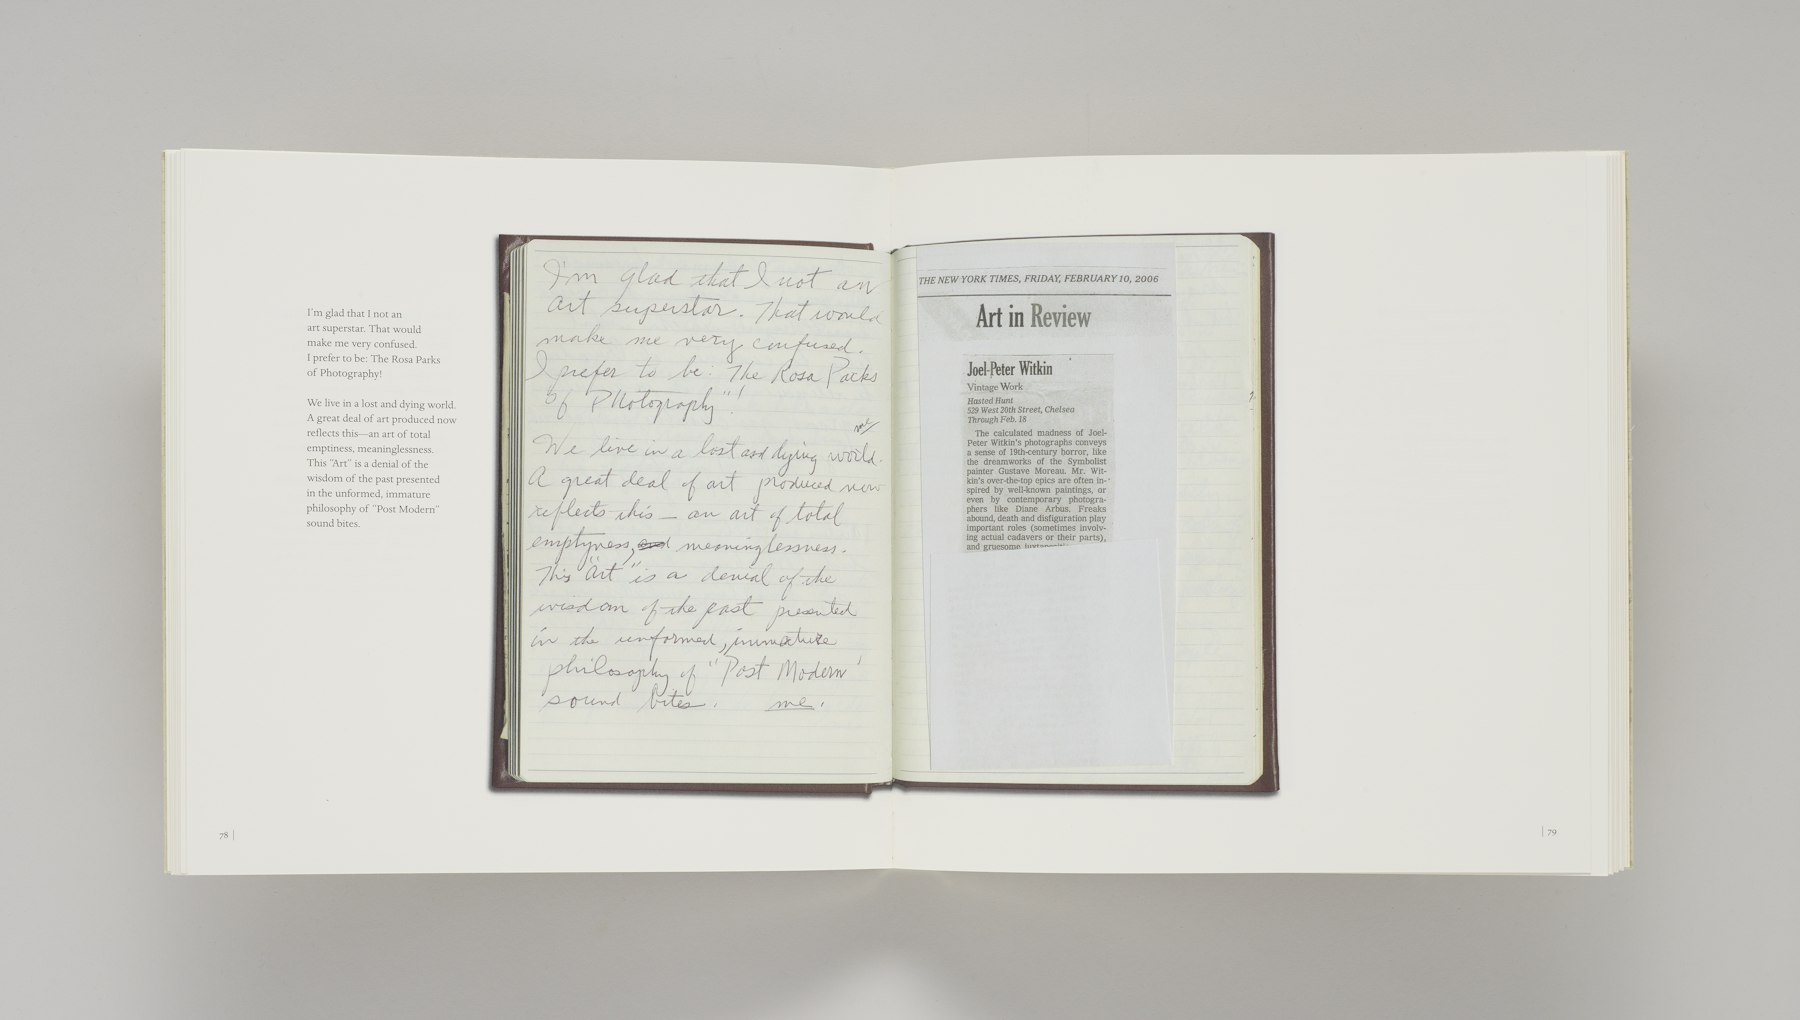 I'm glad that I not an
art superstar. That would
make me very confused.
I prefer to be: The Rosa Parks
of Photography!
We live in a lost and dying world.
A great deal of art produced now
reflects this—an art of total
emptiness, meaninglessness.
This "Art" is a denial of the
wisdom of the past presented
in the unformed, immature
philosophy of "Post Modern"
sound bites.
78
I'm glad that I not an
art superstar. That would
make me very confused.
I prefer to be: The Rosa Parks
of Photography"!
We live in a lost and dying world.
A great deal of art produced now
reflects this — an art of total
emptyness, and meaninglessness.
This "Art" is a denial of the
wisdom of the past presented
in the unformed, immature
philosophy of "Post Modern'
sound bites. me.
THE NEW YORK TIMES, FRIDAY, FEBRUARY 10, 2006
Art in Review
Joel-Peter Witkin
Vintage Work
Hasted Hunt
529 West 20th Street, Chelsea
Through Feb. 18
The calculated madness of Joel-
Peter Witkin's photographs conveys
a sense of 19th-century horror, like
the dreamworks of the Symbolist
painter Gustave Moreau. Mr. Wit-
kin's over-the-top epics are often in-
spired by well-known paintings, or
even by contemporary photogra-
phers like Diane Arbus. Freaks
abound, death and disfiguration play
important roles (sometimes involv-
ing actual cadavers or their parts),
and gruesome
79